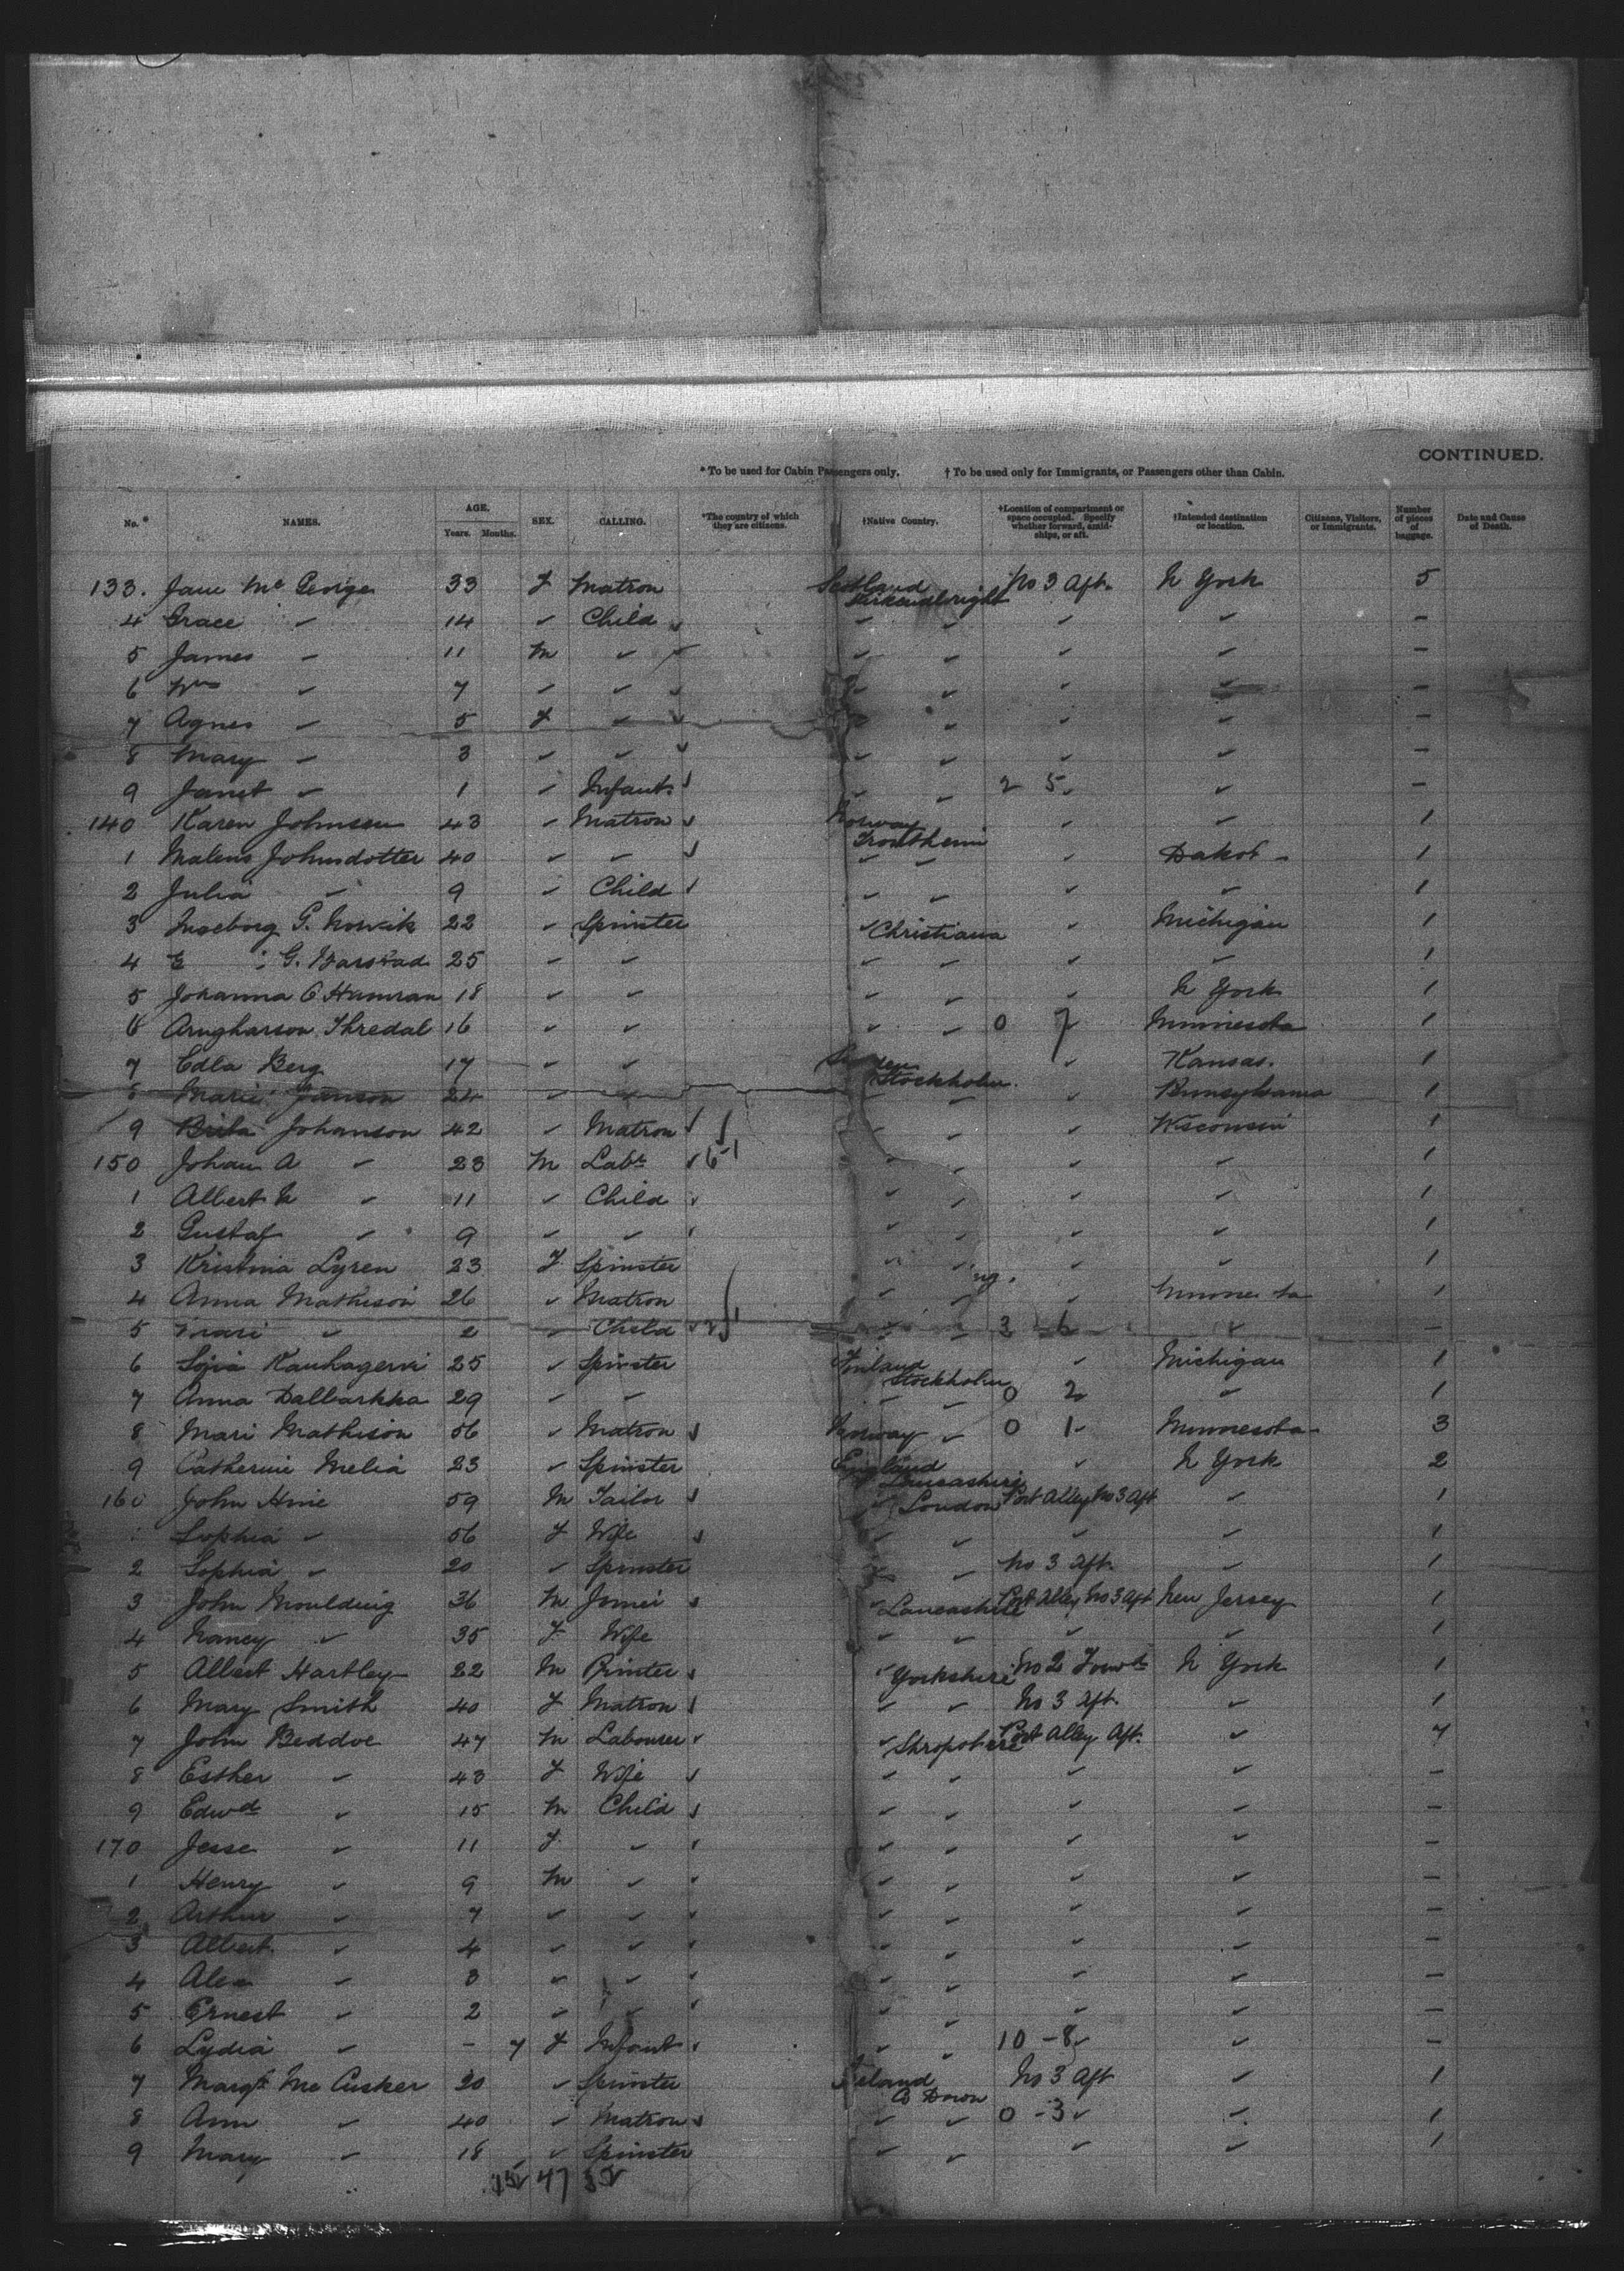 CONTINUED.
* To be used for Cabin Passengers only. † To be used only for Immigrants, or Passengers other than Cabin.
No.* NAMES. AGE. Years. Months. SEX. CALLING. *The country of which they are citizens. †Native Country. †Location of compartment or space occupied. Specify whether forward, amidships, or aft. †Intended destination or location. Citizens, Visitors, or Immigrants. Number of pieces of baggage. Date and Cause of Death.
133. Jane Mc George 33 f Matron Scotland Kirkcudbright No 3 Aft. N York 5
4 Grace " 14 " Child " " " " -
5 James " 11 m " " " " " -
6 Wm " 7 " " " " " " -
7 Agnes " 5 f " " " " " -
8 Mary " 3 " " " " " " -
9 Janet " 1 " Infant " " 2 5 " -
140 Karen Johnsen 43 " Matron Norway Trontheim " " 1
1 Malens Johnsdotter 40 " " " " " Dakot 1
2 Julia " 9 " Child " " " " 1
3 Ingeborg G. Norvik 22 " Spinster " Christiana " Michigan 1
4 G. 25 " " " " " " 1
5 Johanna O Hamran 18 " " " " " N York 1
6 Arngharson Thredal 16 " " " " 0 7 Minnesota 1
7 Edla Berg 17 " " Sweden Stockholm " Kansas. 1
8 Marie Janson 24 " " " " " Pennsylvania 1
9 Brita Johanson 42 " Matron " " " Wisconsin 1
150 Johan A " 23 m Labr 6-1 " " " " 1
1 Albert N " 11 " Child " " " " 1
2 Gustaf " 9 " " " " " " 1
3 Kristina Lyren 23 f Spinster " " " " 1
4 Anna Mathison 26 " Matron " " " Minnesota 1
5 Mari " 2 " Child " " 3 6 " -
6 Kauhagervi 25 " Spinster Finland Stockholm " Michigan 1
7 Anna Dalbarkka 29 " " " " 0 2 " 1
8 Mari Mathison 56 " Matron Norway " 0 1 Minnesota 3
9 Catherine Melia 23 " Spinster England Lancashire " N York 2
160 John Hine 59 m Tailor " London Port Alley No 3 Aft " 1
Sophia " 56 f Wife " " " " 1
2 Sophia " 20 " Spinster " " No 3 Aft. " 1
3 John Moulding 36 m Joiner " Lancashire Port Alley No 3 Aft New Jersey 1
4 Nancy " 35 f Wife " " " " 1
5 Albert Hartley 22 m Printer " Yorkshire No 2 Forwd N York 1
6 Mary Smith 40 f Matron " " No 3 Aft. " 1
7 John Beddoe 47 m Labourer " Shropshire Port Alley Aft. " 7
8 Esther " 43 f Wife " " " " -
9 Edwd " 15 m Child " " " " -
170 Jesse " 11 f " " " " " -
1 Henry " 9 m " " " " " -
2 Arthur " 7 " " " " " " -
3 Albert " 4 " " " " " " -
4 Alex " 3 " " " " " " -
5 Ernest " 2 " " " " " " -
6 Lydia " - 7 f Infant " " 10 - 8 " -
7 Margt Mc Cusker 20 " Spinster Ireland Co Down No 3 Aft " 1
8 Ann " 40 " Matron " " 0 - 3 " 1
9 Mary " 18 " Spinster " " " " 1
47